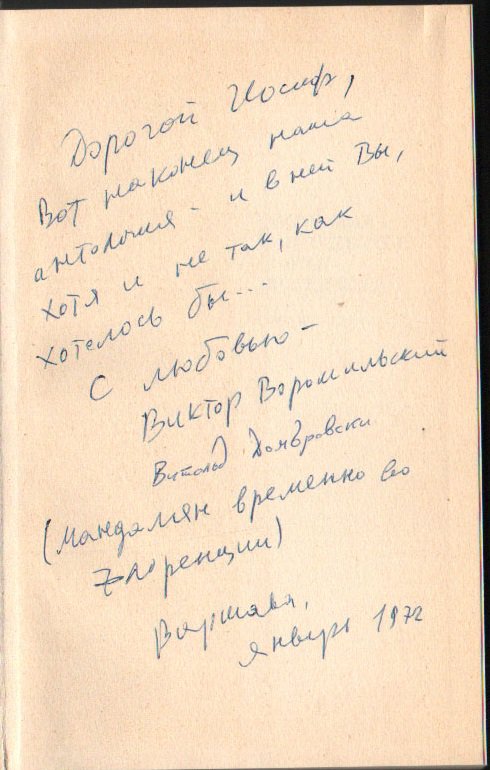 Дорогой Иосиф,
Вот наконец наша
антология - и в ней Вы,
хотя и не так, как
хотелось бы...
С любовью -
Виктор Ворошильский
Витольд Домбровски
(Мандалян временно во
Флоренции)
Варшава,
январь 1972